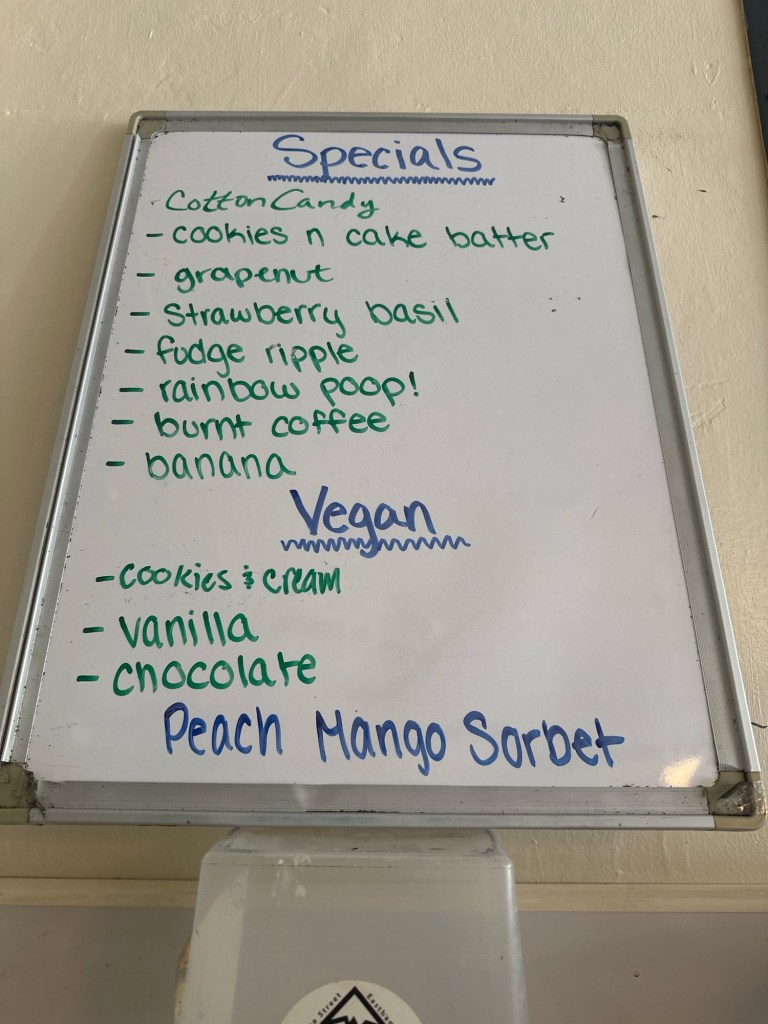 Specials
- Cotton Candy
- cookies n cake batter
- grapenut
- Strawberry basil
- fudge ripple
- rainbow poop!
- burnt coffee
- banana
Vegan
- cookies & cream
- vanilla
- chocolate
Peach Mango Sorbet
Street